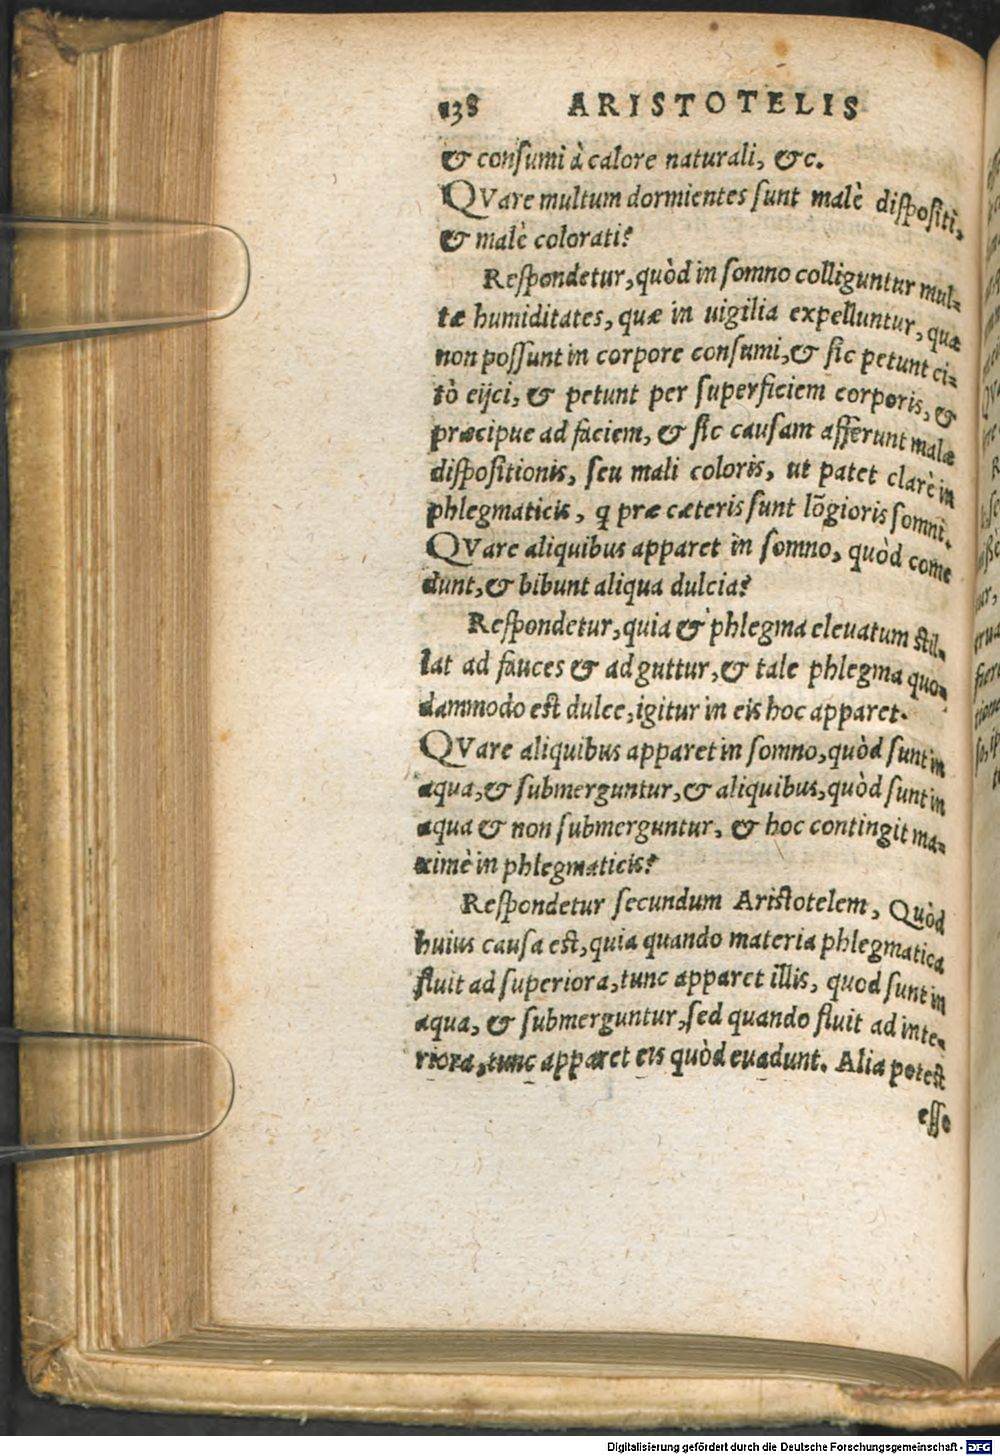 138 ARISTOTELIS
& consumi à calore naturali, &c.
QVare multum dormientes sunt malè dispositi,
& malè colorati?
Respondetur, quòd in somno colliguntur mul-
tæ humiditates, quæ in uigilia expelluntur, quæ
non possunt in corpore consumi, & sic petunt ci-
tò eijci, & petunt per superficiem corporis, &
præcipue ad faciem, & sic causam afferunt malæ
dispositionis, seu mali coloris, ut patet clarè in
phlegmaticis, q præ cæteris sunt lõgioris somni.
QVare aliquibus apparet in somno, quòd come
dunt, & bibunt aliqua dulcia?
Respondetur, quia & phlegma eleuatum stil-
lat ad fauces & ad guttur, & tale phlegma quo-
dammodo est dulce, igitur in eis hoc apparet.
QVare aliquibus apparet in somno, quòd sunt in
aqua, & submerguntur, & aliquibus, quòd sunt in
aqua & non submerguntur, & hoc contingit ma-
ximè in phlegmaticis?
Respondetur secundum Aristotelem, Quòd
huius causa est, quia quando materia phlegmatica
fluit ad superiora, tunc apparet illis, quod sunt in
aqua, & submerguntur, sed quando fluit ad inte-
riora, tunc apparet eis quòd euadunt. Alia potest
esse
Digitalisierung gefördert durch die Deutsche Forschungsgemeinschaft - DFG